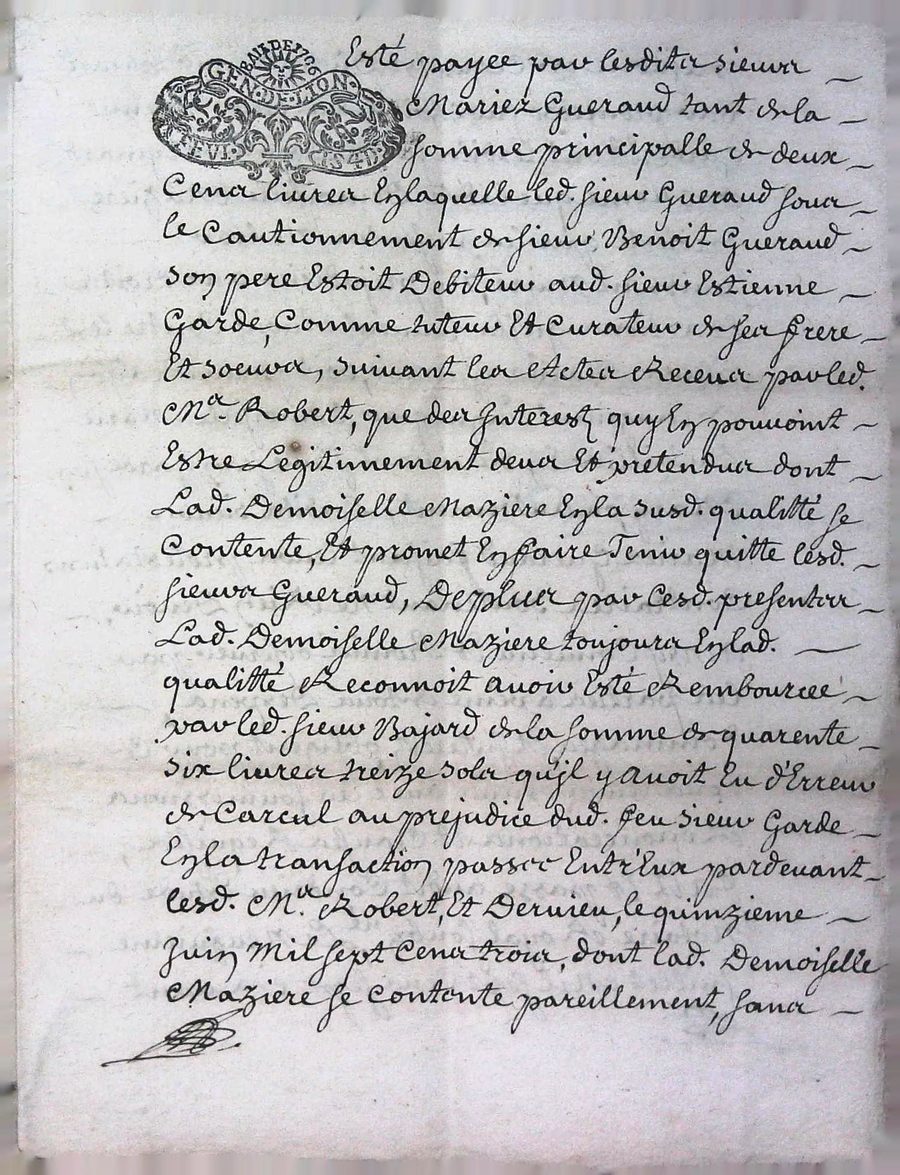 BAIL DE 1706
GEN. DE LION.
Esté payee par lesdits sieurs
Mariez Gueraud tant de la
somme principalle de deux
Cens livres En laquelle led. sieur Gueraud sous
le Cautionnement de sieur Benoit Gueraud
son pere Estoit Debiteur aud. sieur Estienne
Garde, Comme tuteur Et Curateur de ses frere
Et soeurs, suivant les Actes Receus par led.
Mr. Robert, que des Interest quy En pouvoint
Estre Legitimement deus Et pretendus dont
Lad. Demoiselle Maziere En la susd. qualitté se
Contente, Et promet En faire Tenir quitte lesd.
sieurs Gueraud, De plus par Cesd. presentes
Lad. Demoiselle Maziere toujours En lad.
qualitté Reconnoit avoir Esté Rembourcee
par led. sieur Bajard de la somme de quarente
six livres treize sols qu'jl y avoit Eu d'Erreur
de Carcul au prejudice dud. feu sieur Garde
En la transaction passee Entr'Eux pardevant
lesd. Mrs. Robert, Et Dervieu, le quinzieme
Juin Mil sept Cens trois, dont lad. Demoiselle
Maziere se contente pareillement, sans